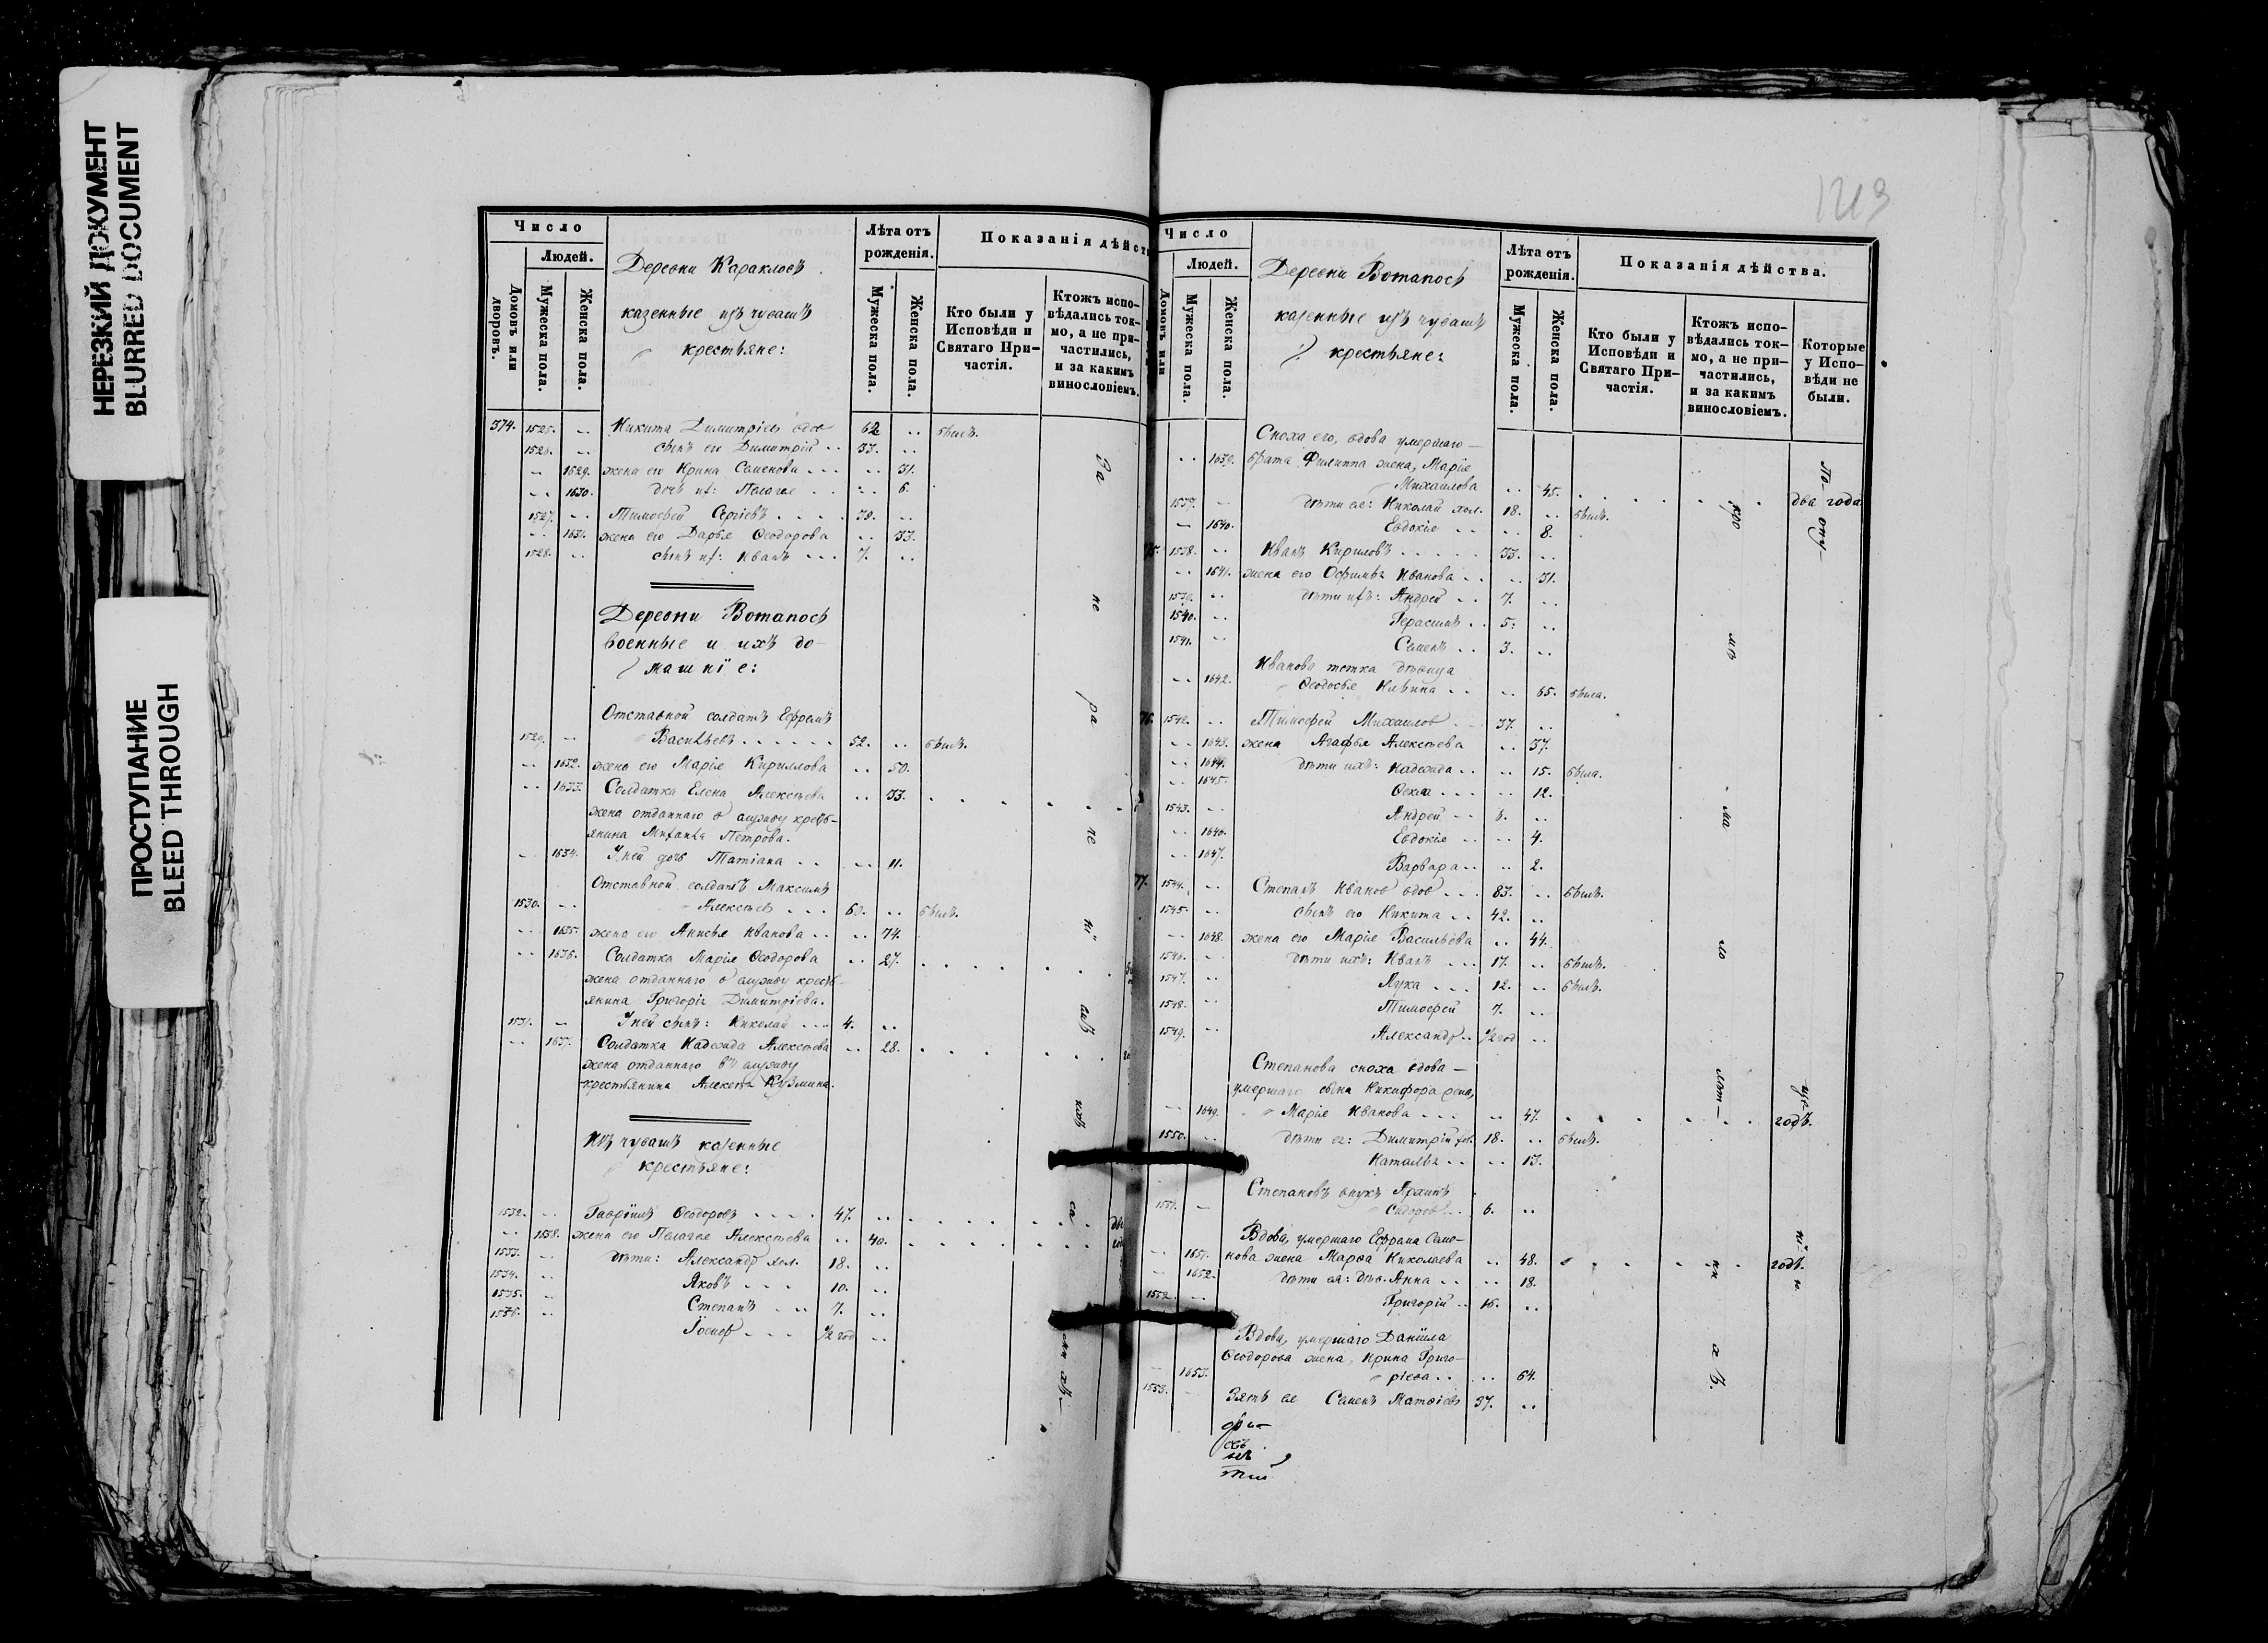 НЕРЕЗКИЙ ДОКУМЕНТ
BLURRED DOCUMENT
ПРОСТУПАНИЕ
BLEED THROUGH
Число
Людей.
Домовъ или дворовъ.
Мужеска пола.
Женска пола.
Деревни Караклосъ
казенные изъ чувашъ
крестьяне:
Лѣта отъ рожденія.
Мужеска пола.
Женска пола.
Показанія дѣйст
Кто были у Исповѣди и Святаго При-частія.
Ктожъ испо-вѣдались ток-мо, а не при-частились, и за какимъ винословіемъ.
374. 1525. .. Никита Димитріевъ вдов 62 .. былъ.
1526. .. сынъ его Димитрій .. 33. ..
.. 1629. жена его Ирина Семенова ... .. 31.
.. 1630. дочь их: Пелагея .. .. 6.
1527. .. Тимофей Сергіевъ .... 39. ..
.. 1631. жена его Дарья Ѳеодорова .. 33.
1528. .. сынъ их: Иванъ ... 7. ..
Деревни Вотаносъ
военные и ихъ до-
машніе:
Отставной солдатъ Ефремъ
1529. .. Васильевъ ...... 52. .. былъ.
.. 1632. жена его Марія Кириллова .. 50.
.. 1633. Солдатка Елена Алексѣева .. 33.
жена отданнаго в службу кресть-
янина Петрова.
.. 1634. У ней дочь Татіана .. .. 11.
Отставной солдатъ Максимъ
1530. .. Алексѣев ... 60. .. былъ.
.. 1635. жена его Анисья Иванова .. .. 74.
.. 1636. Солдатка Марія Ѳеодорова .. 27.
жена отданнаго в службу кресть-
янина Григорія Димитріева.
1531. .. У ней сынъ: Николай ... 4. ..
.. 1637. Солдатка Надежда Алексѣева .. 28.
жена отданнаго въ службу
крестьянина Алексѣя Кузмина.
Изъ чувашъ казенные
крестьяне:
1532. .. Гавріилъ Ѳеодоровъ .... 47. ..
.. 1638. жена его Пелагея Алексѣева .. 40.
1533. .. дѣти: Александр хол. 18. ..
1534. .. Яковъ ... 10. ..
1535. .. Степанъ ... 7. ..
1536. .. Іосиф ... 1/2 год ..
1213
Число
Людей.
Домовъ или
Мужеска пола.
Женска пола.
Деревни Вотаносъ
казенные изъ чувашъ
крестьяне:
Лѣта отъ рожденія.
Мужеска пола.
Женска пола.
Показанія дѣйства.
Кто были у Исповѣди и Святаго При-частія.
Ктожъ испо-вѣдались ток-мо, а не при-частились, и за какимъ винословіемъ.
Которые у Испо-вѣди не были.
Сноха его, вдова умершаго —
.. 1639. брата Филиппа жена, Марія
Михаилова .. 45. два года
1537. .. дѣти ея: Николай хол. 18. .. былъ.
.. 1640. Евдокія .. .. 8.
75. 1538. .. Иванъ Кириловъ ..... 33. ..
.. 1641. жена его Иванова .. .. 31.
1539. .. дѣти ихъ: Андрей .. 7. ..
1540. .. Герасимъ .. 5. ..
1541. .. Семенъ .. 3. ..
Иванова тетка дѣвица
.. 1642. Ѳеодосья Ильина .. .. 65. была.
76. 1542. .. Тимофей Михаилов .. 37. ..
.. 1643. жена Агафья Алексѣева .. 37.
.. 1644. дѣти ихъ: Надежда .. .. 15. была.
.. 1645. Ѳекла ... .. 12.
1543. .. Андрей .. 6. ..
.. 1646. Евдокія .. .. 4.
.. 1647. Варвара .. .. 2.
77. 1544. .. Степанъ Иванов вдов ... 83. .. былъ.
1545. .. сынъ его Никита .. 42. ..
.. 1648. жена его Марія Васильева .. 44.
1546. .. дѣти ихъ: Иванъ ... 17. .. былъ.
1547. .. Лука ... 12. .. былъ.
1548. .. Тимофей 7. ..
1549. .. Александр .. 1/2 год ..
Степанова сноха вдова —
умершаго сына Никифора жена,
.. 1649. Марія Иванова ... .. 47. годъ.
1550. .. дѣти ея: Димитрій хол. 18. .. былъ.
Наталья .. .. 13.
Степановъ внукъ Архипъ
1551. .. Сидоров ... 6. ..
Вдова, умершаго Ефрема Семе-
.. 1651. нова жена Марѳа Николаева .. 48. годъ.
.. 1652. дѣти ея: дѣв. Анна .. .. 18.
1552. .. Григорій .. 16. ..
Вдова, умершаго Даніила
Ѳеодорова жена, Ирина Григо-
.. 1653. ріева .. .. 64.
1553. .. Зять ея Семенъ Матвіевъ 37. ..